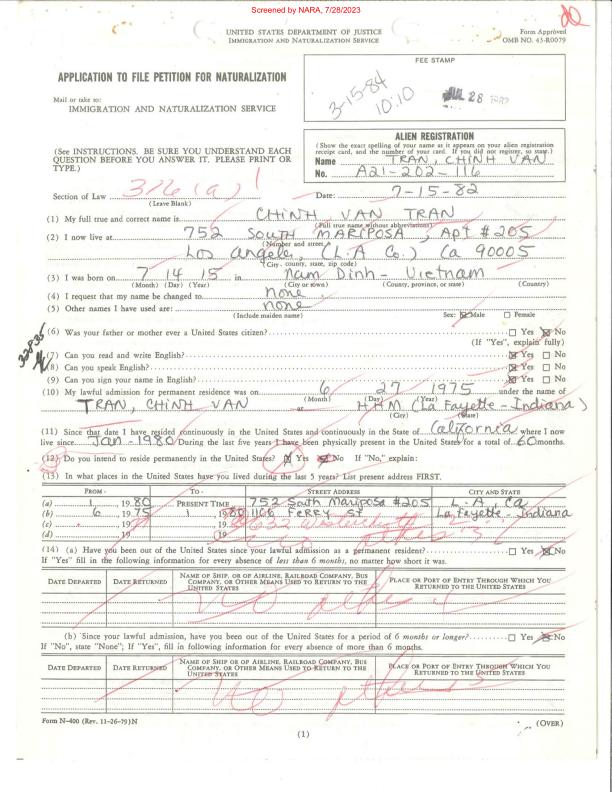 Screened by NARA, 7/28/2023
UNITED STATES DEPARTMENT OF JUSTICE
IMMIGRATION AND NATURALIZATION SERVICE
Form Approved
OMB NO. 43-R0079
FEE STAMP
3-15-84
10:10
JUL 28 1982
APPLICATION TO FILE PETITION FOR NATURALIZATION
Mail or take to:
IMMIGRATION AND NATURALIZATION SERVICE
(See INSTRUCTIONS. BE SURE YOU UNDERSTAND EACH QUESTION BEFORE YOU ANSWER IT. PLEASE PRINT OR TYPE.)
ALIEN REGISTRATION
(Show the exact spelling of your name as it appears on your alien registration receipt card, and the number of your card. If you did not register, so state.)
Name TRAN, CHINH VAN
No. A21-202-116
Section of Law 316(a)
(Leave Blank)
Date: 7-15-82
(1) My full true and correct name is CHINH VAN TRAN
(Full true name without abbreviations)
(2) I now live at 752 SOUTH MARIPOSA, Apt #205
(Number and street)
Los Angeles, (L.A Co.) Ca 90005
(City, county, state, zip code)
(3) I was born on 7 14 15 in Nam Dinh - Vietnam
(Month) (Day) (Year) (City or town) (County, province, or state) (Country)
(4) I request that my name be changed to none
(5) Other names I have used are: none
(Include maiden name) Sex: ☒ Male ☐ Female
(6) Was your father or mother ever a United States citizen? ☐ Yes ☒ No
(If "Yes", explain fully)
(7) Can you read and write English? ☒ Yes ☐ No
(8) Can you speak English? ☒ Yes ☐ No
(9) Can you sign your name in English? ☒ Yes ☐ No
(10) My lawful admission for permanent residence was on 6 27 1975 under the name of
(Month) (Day) (Year)
TRAN, CHINH VAN at HHM (La Fayette - Indiana)
(City) (State)
(11) Since that date I have resided continuously in the United States and continuously in the State of California where I now
live since Jan - 1980 During the last five years I have been physically present in the United States for a total of 60 months.
(12) Do you intend to reside permanently in the United States? ☒ Yes ☐ No If "No," explain:
(13) In what places in the United States have you lived during the last 5 years? List present address FIRST.
FROM - TO - STREET ADDRESS CITY AND STATE
(a) 1 19 80 PRESENT TIME 752 South Mariposa #205 L.A, Ca
(b) 6 19 75 1 19 80 1106 FERRY ST La Fayette - Indiana
(c) 19 19
(d) 19 19
(14) (a) Have you been out of the United States since your lawful admission as a permanent resident? ☐ Yes ☒ No
If "Yes" fill in the following information for every absence of less than 6 months, no matter how short it was.
DATE DEPARTED DATE RETURNED NAME OF SHIP, OR OF AIRLINE, RAILROAD COMPANY, BUS COMPANY, OR OTHER MEANS USED TO RETURN TO THE UNITED STATES PLACE OR PORT OF ENTRY THROUGH WHICH YOU RETURNED TO THE UNITED STATES
no others
(b) Since your lawful admission, have you been out of the United States for a period of 6 months or longer? ☐ Yes ☒ No
If "No", state "None"; If "Yes", fill in following information for every absence of more than 6 months.
DATE DEPARTED DATE RETURNED NAME OF SHIP OR OF AIRLINE, RAILROAD COMPANY, BUS COMPANY, OR OTHER MEANS USED TO RETURN TO THE UNITED STATES PLACE OR PORT OF ENTRY THROUGH WHICH YOU RETURNED TO THE UNITED STATES
no others
Form N-400 (Rev. 11-26-79)N
(OVER)
(1)